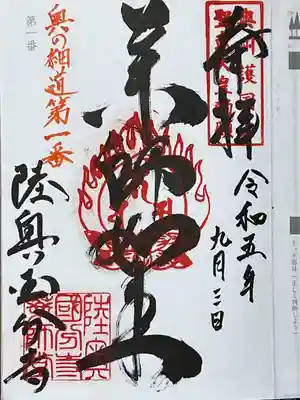 奉拝
令和五年
九月三日
薬師如来
奥の細道第一番
第一番
陸奥国分寺
陸奥
国分寺
薬師堂